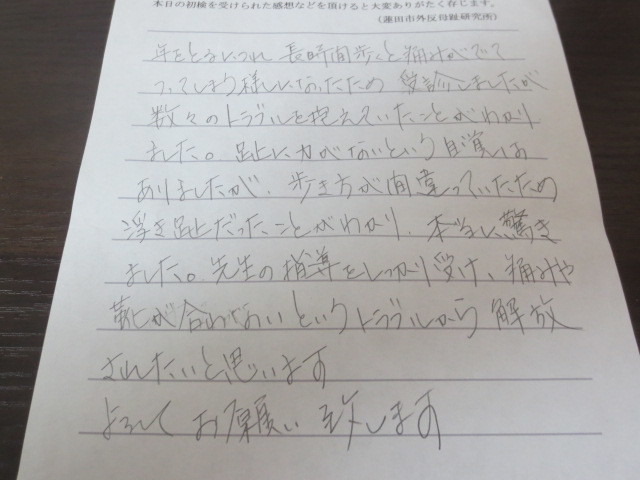 本日の初検を受けられた感想などを頂けると大変ありがたく存じます。
(蓮田市外反母趾研究所)
年をとるにつれ 長時間歩くと痛みがでて
しまう様になったため 受診しましたが
数々のトラブルを抱えていたことがわかり
ました。足に力がないという自覚は
ありましたが、歩き方が間違っていたため
浮き趾だったことがわかり、本当に驚き
ました。先生の指導をしっかり受け、痛みや
靴が合わないというトラブルから解放
されたいと思います
よろしくお願い致します